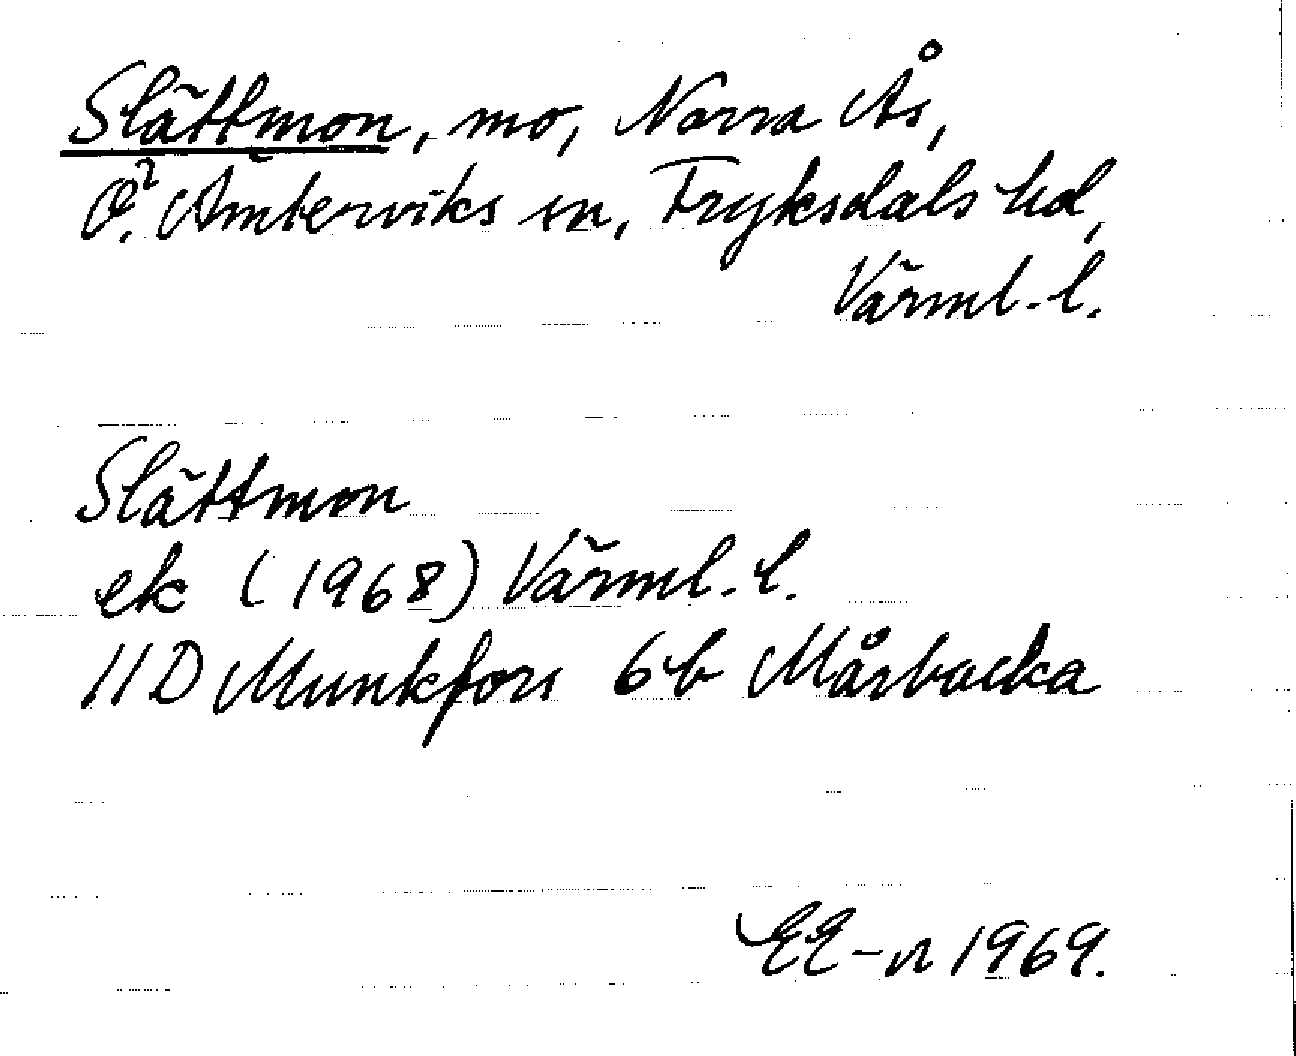 Slättmon, mo, Norra Ås,
Ö. Ämterviks sn, Fryksdals hd,
Värml. l.
Slättmon
ek (1968) Värml. l.
11D Munkfors 6b Mårbacka
EE-n 1969.